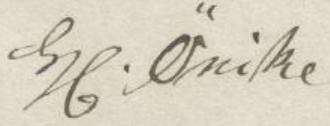 H. Önike